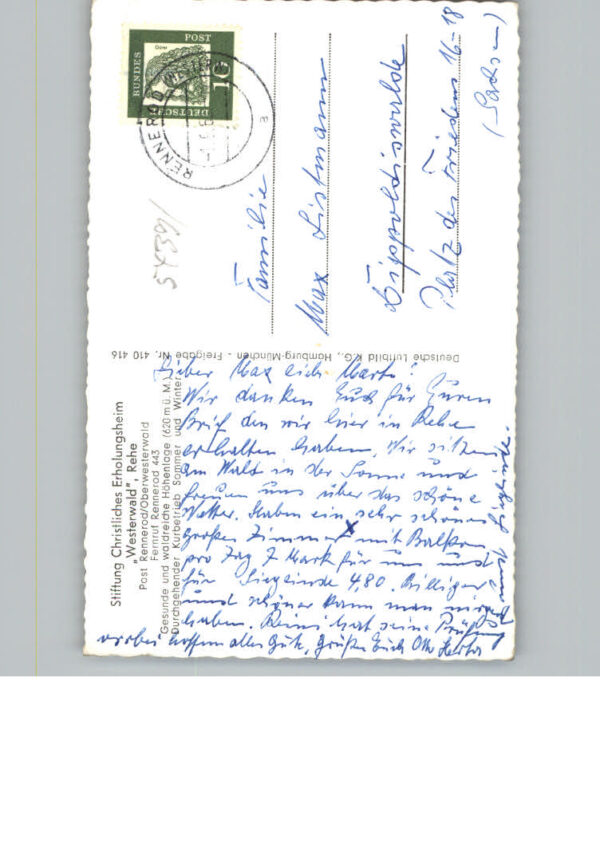 Stiftung Christliches Erholungsheim
„Westerwald", Rehe
Post Rennerod/Oberwesterwald
Fernruf Rennerod 443
Gesunde und waldreiche Höhenlage (620 m ü. M.)
Durchgehender Kurbetrieb Sommer und Winter
Deutsche Luftbild K.G., Hamburg-München - Freigabe Nr. 410 416
Lieber Max liebe Marta!
Wir danken Euch für Euren
Brief den wir hier in Rehe
erhalten haben. Wir sitzen
am Wald in der Sonne und
freuen uns über das schöne
Wetter. Haben ein sehr schönes
großes Zimmer mit Balkon
pro Tag 7 Mark für uns und
für Sieglinde 4,80. Billiger
und schöner kann man nirgends
haben. seine Prüfung
vorbei hoffen alles Gute, Grüßen Euch Otto
und Sieglinde.
DEUTSCHE
BUNDES
POST
10
RENNEROD (WESTERW)
a
Familie
Max Listmann
Dippoldiswalde
Platz des Friedens 16-18
(Sachsen)